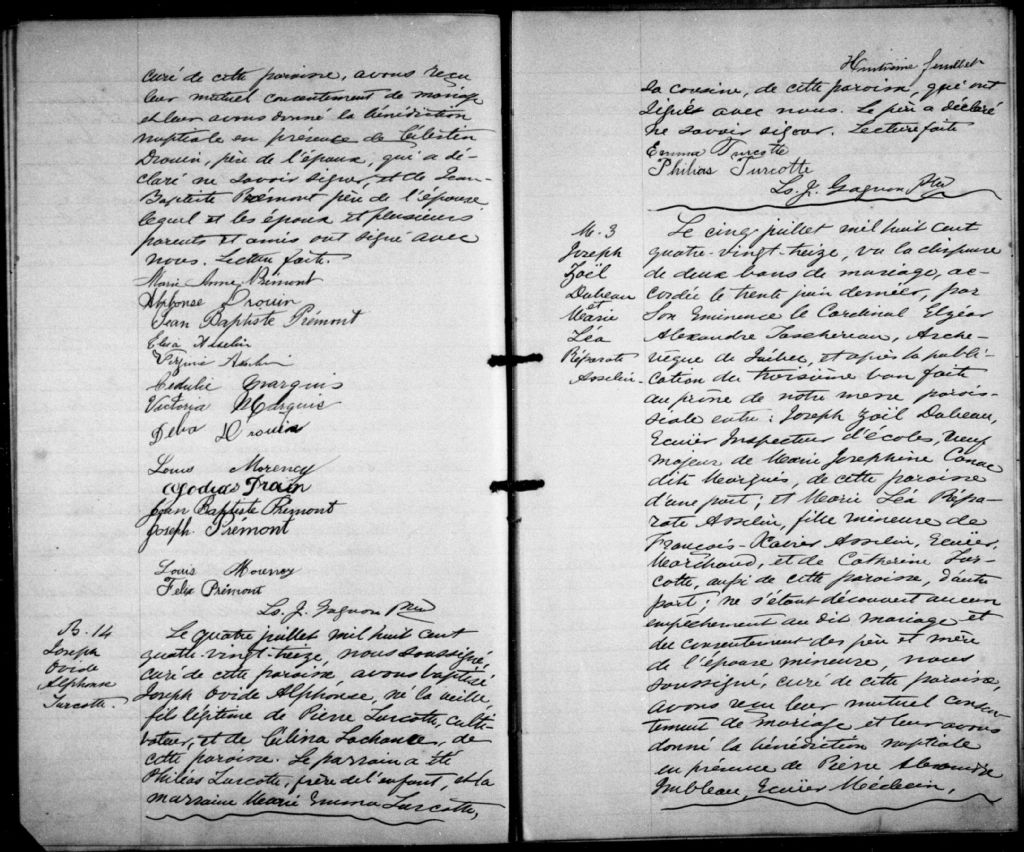 curé de cette paroisse, avons reçu
leur mutuel consentement de mariage
et leur avons donné la bénédiction
nuptiale en présence de Célestin
Drouin, père de l'époux, qui a dé-
claré ne savoir signer, et de Jean-
Baptiste Prémont père de l'épouse
lequel et les époux et plusieurs
parents et amis ont signé avec
nous. Lecture faite.
Marie Anne Prémont
Alphonse Drouin
Jean Baptiste Prémont
Asselin
Virginie Asselin
Cédulie Marquis
Victoria Marquis
Délia Drouin
Louis Morency
Jean Baptiste Prémont
Joseph Prémont
Louis Morency
Felix Prémont
Ls. J. Gagnon Ptre
B. 14
Joseph
Ovide
Alphonse
Turcotte
Le quatre juillet mil huit cent
quatre-vingt-treize, nous soussigné,
curé de cette paroisse, avons baptisé
Joseph Ovide Alphonse, né la veille,
fils légitime de Pierre Turcotte, culti-
vateur, et de Célina Lachance, de
cette paroisse. Le parrain a été
Philéas Turcotte, frère de l'enfant, et la
marraine Marie Emma Turcotte,
Huitième feuillet
sa cousine, de cette paroisse, qui ont
signés avec nous. Le père a déclaré
ne savoir signer. Lecture faite
Emma Turcotte
Philias Turcotte
Ls. J. Gagnon Ptre
M. 3
Joseph
Zoël
Dubeau
et
Marie
Léa
Réparate
Asselin
Le cinq juillet mil huit cent
quatre-vingt-treize, vu la dispense
de deux bans de mariage, ac-
cordée le trente juin dernier, par
Son Eminence le Cardinal Elzéar
Alexandre Taschereau, Arche-
vêque de Québec, et après la publi-
cation du troisième ban fait
au prône de notre messe parois-
siale entre: Joseph Zoël Dubeau,
Ecuier Inspecteur d'écoles, veuf
majeur de Marie Josephine Canac
dite Marquis, de cette paroisse
d'une part; et Marie Léa Répa-
rate Asselin, fille mineure de
François-Xavier Asselin, Ecuier,
Marchand, et de Catherine Tur-
cotte, aussi de cette paroisse, d'autre
part; ne s'étant découvert aucun
empêchement au dit mariage et
du consentement des père et mère
de l'épouse mineure, nous
soussigné, curé de cette paroisse,
avons reçu leur mutuel consen-
tement de mariage et leur avons
donné la bénédiction nuptiale
en présence de Pierre Alexandre
Imbleau, Ecuier Médecin,